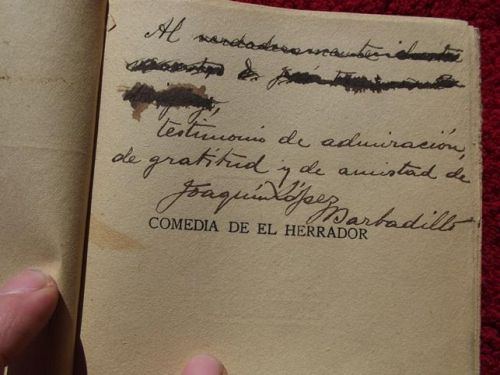 Al verdaderamente
maestro D. José
testimonio de admiración,
de gratitud y de amistad de
Joaquín López
Barbadillo
COMEDIA DE EL HERRADOR